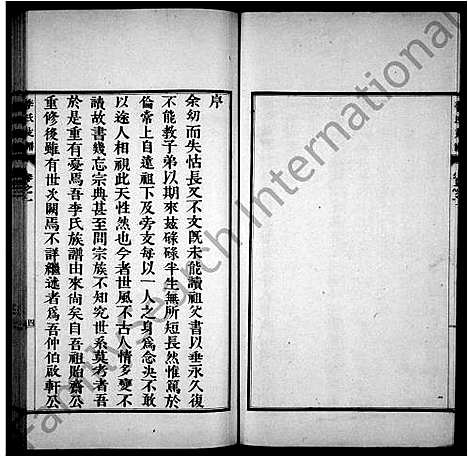 序
余幼而失怙長又不文既未能讀祖父書以垂永久復
不能教子弟以期來兹碌碌半生無所短長然惟篤於
倫常上自遠祖下及旁支每以一人之身爲念夬不敢
以途人相視此天性然也今者世風不古人情多變不
讀故書幾忘宗典甚至問宗族不知究世系莫考者吾
於是重有憂焉吾李氏族譜由來尚矣自吾祖貽齋公
重修後雖有世次闕焉不詳繼述者爲吾仲伯啟軒公
李氏族譜
卷之一
四
FamilySearch International